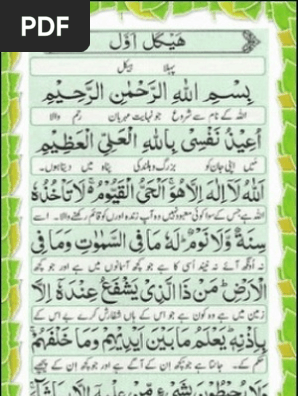 PDF
هَيْكَل اَوّل
پہلا ہیکل
بِسْمِ اللهِ الرَّحْمٰنِ الرَّحِيْمِ
اللہ کے نام سے شروع جو نہایت مہربان رحم والا
اُعِيْذُ نَفْسِيْ بِاللهِ الْعَلِيِّ الْعَظِيْمِ
میں اپنی جان کو بزرگ و بلند کی پناہ میں دیتا ہوں۔
اَللهُ لَا اِلٰهَ اِلَّا هُوَ اَلْحَيُّ الْقَيُّوْمُ ۚ لَا تَاْخُذُهٗ
اللہ ہے جس کے سوا کوئی معبود نہیں وہ آپ زندہ اوروں کو قائم رکھنے والا۔ اسے
سِنَةٌ وَّلَا نَوْمٌ ؕ لَهٗ مَا فِي السَّمٰوٰتِ وَمَا فِي
نہ اونگھ آئے نہ نیند اسی کا ہے جو کچھ آسمانوں میں ہے اور جو کچھ
الْاَرْضِ ؕ مَنْ ذَا الَّذِيْ يَشْفَعُ عِنْدَهٗ اِلَّا
زمین میں ہے وہ کون ہے جو اس کے ہاں سفارش کرے بے اس کے
بِاِذْنِهٖ ؕ يَعْلَمُ مَا بَيْنَ اَيْدِيْهِمْ وَمَا خَلْفَهُمْ ۚ
حکم کے۔ جانتا ہے جو کچھ ان کے آگے ہے اور جو کچھ ان کے پیچھے
وَلَا يُحِيْطُوْنَ بِشَيْءٍ مِّنْ عِلْمِهٖ اِلَّا بِمَا شَآءَ